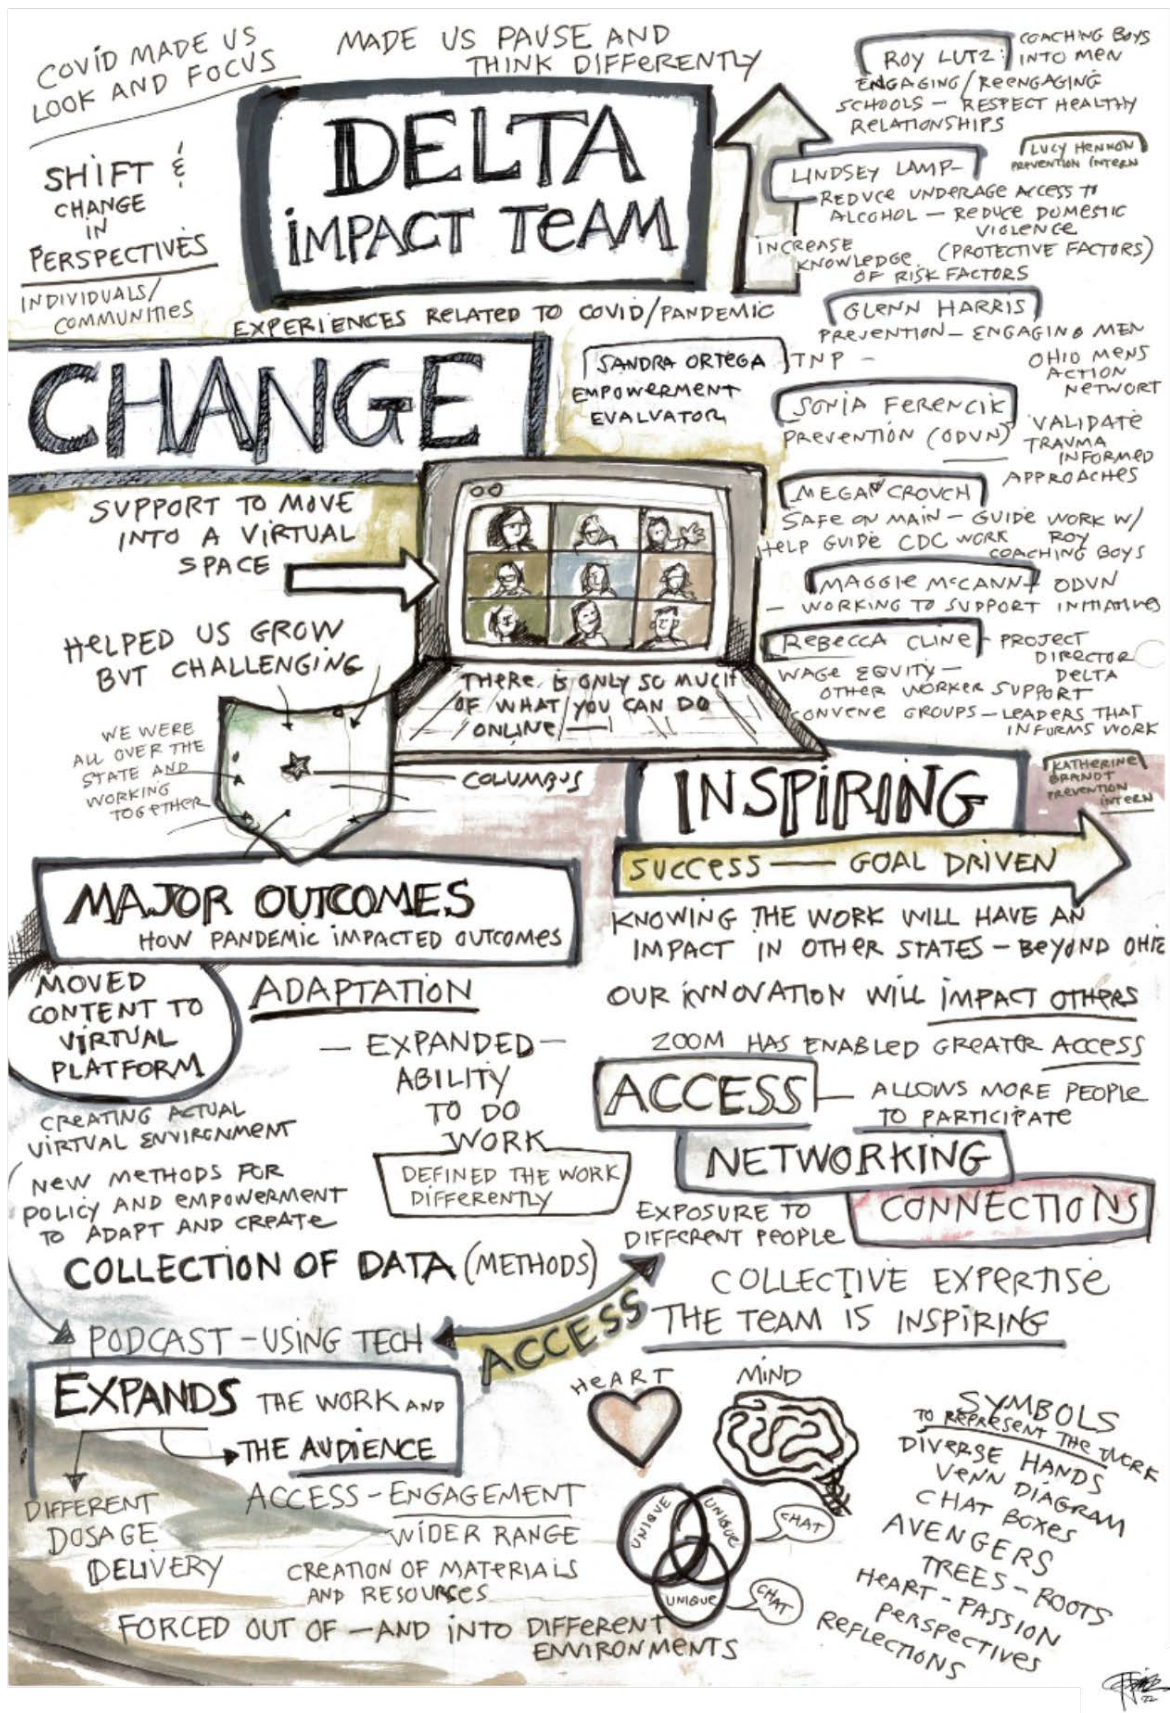 COVID MADE US
LOOK AND FOCUS
MADE US PAUSE AND
THINK DIFFERENTLY
DELTA
IMPACT TEAM
SHIFT &
CHANGE
IN
PERSPECTIVES
INDIVIDUALS/
COMMUNITIES
EXPERIENCES RELATED TO COVID/PANDEMIC
CHANGE
SANDRA ORTEGA
EMPOWERMENT
EVALUATOR
ROY LUTZ: COACHING BOYS
INTO MEN
ENGAGING/REENGAGING
SCHOOLS - RESPECT HEALTHY
RELATIONSHIPS
LUCY HENNON
PREVENTION INTERN
LINDSEY LAMP-
REDUCE UNDERAGE ACCESS TO
ALCOHOL - REDUCE DOMESTIC
VIOLENCE
INCREASE (PROTECTIVE FACTORS)
KNOWLEDGE
OF RISK FACTORS
GLENN HARRIS
PREVENTION - ENGAGING MEN
TNP - OHIO MENS
ACTION
NETWORT
SONIA FERENCIK
PREVENTION (ODVN) VALIDATE
TRAUMA
INFORMED
APPROACHES
MEGAN CROUCH
SAFE ON MAIN - GUIDE WORK W/
ROY
HELP GUIDE CDC WORK COACHING BOYS
MAGGIE MCCANN ODVN
- WORKING TO SUPPORT INITIATIVES
REBECCA CLINE - PROJECT
DIRECTOR
DELTA
WAGE EQUITY -
OTHER WORKER SUPPORT
CONVENE GROUPS - LEADERS THAT
INFORMS WORK
KATHERINE
BRANDT
PREVENTION
INTERN
SUPPORT TO MOVE
INTO A VIRTUAL
SPACE
HELPED US GROW
BUT CHALLENGING
THERE IS ONLY SO MUCH
OF WHAT YOU CAN DO
ONLINE
WE WERE
ALL OVER THE
STATE AND
WORKING
TOGETHER
COLUMBUS
INSPIRING
SUCCESS - GOAL DRIVEN
KNOWING THE WORK WILL HAVE AN
IMPACT IN OTHER STATES - BEYOND OHIO
OUR INNOVATION WILL IMPACT OTHERS
ZOOM HAS ENABLED GREATER ACCESS
ACCESS - ALLOWS MORE PEOPLE
TO PARTICIPATE
NETWORKING
CONNECTIONS
EXPOSURE TO
DIFFERENT PEOPLE
COLLECTIVE EXPERTISE
THE TEAM IS INSPIRING
MAJOR OUTCOMES
HOW PANDEMIC IMPACTED OUTCOMES
MOVED
CONTENT TO
VIRTUAL
PLATFORM
ADAPTATION
- EXPANDED -
ABILITY
TO DO
WORK
DEFINED THE WORK
DIFFERENTLY
CREATING ACTUAL
VIRTUAL ENVIRONMENT
NEW METHODS FOR
POLICY AND EMPOWERMENT
TO ADAPT AND CREATE
COLLECTION OF DATA (METHODS)
PODCAST - USING TECH
ACCESS
EXPANDS THE WORK AND
THE AUDIENCE
DIFFERENT
DOSAGE
DELIVERY
ACCESS - ENGAGEMENT
WIDER RANGE
CREATION OF MATERIALS
AND RESOURCES
FORCED OUT OF - AND INTO DIFFERENT
ENVIRONMENTS
HEART
MIND
UNIQUE
UNIQUE
UNIQUE
CHAT
CHAT
SYMBOLS
TO REPRESENT THE WORK
DIVERSE HANDS
VENN DIAGRAM
CHAT BOXES
AVENGERS
TREES - ROOTS
HEART - PASSION
PERSPECTIVES
REFLECTIONS